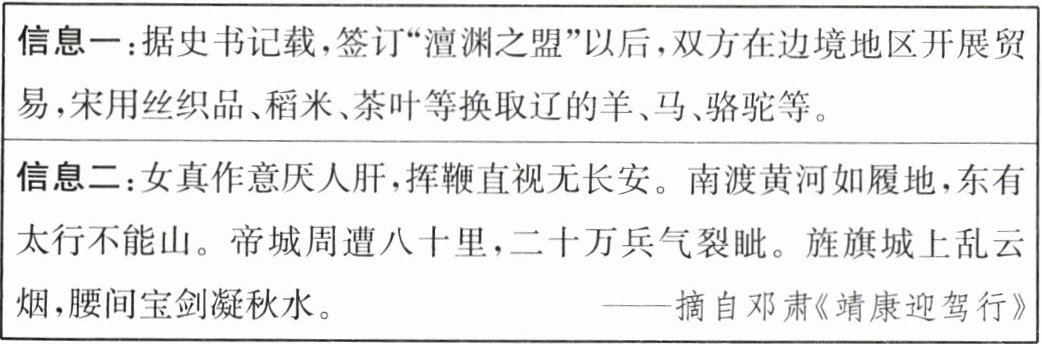 信息一:据史书记载,签订“澶渊之盟”以后,双方在边境地区开展贸
易,宋用丝织品、稻米、茶叶等换取辽的羊、马、骆驼等。
信息二:女真作意厌人肝,挥鞭直视无长安。南渡黄河如履地,东有
太行不能山。帝城周遭八十里,二十万兵气裂眦。旌旗城上乱云
烟,腰间宝剑凝秋水。 ——摘自邓肃《靖康迎驾行》